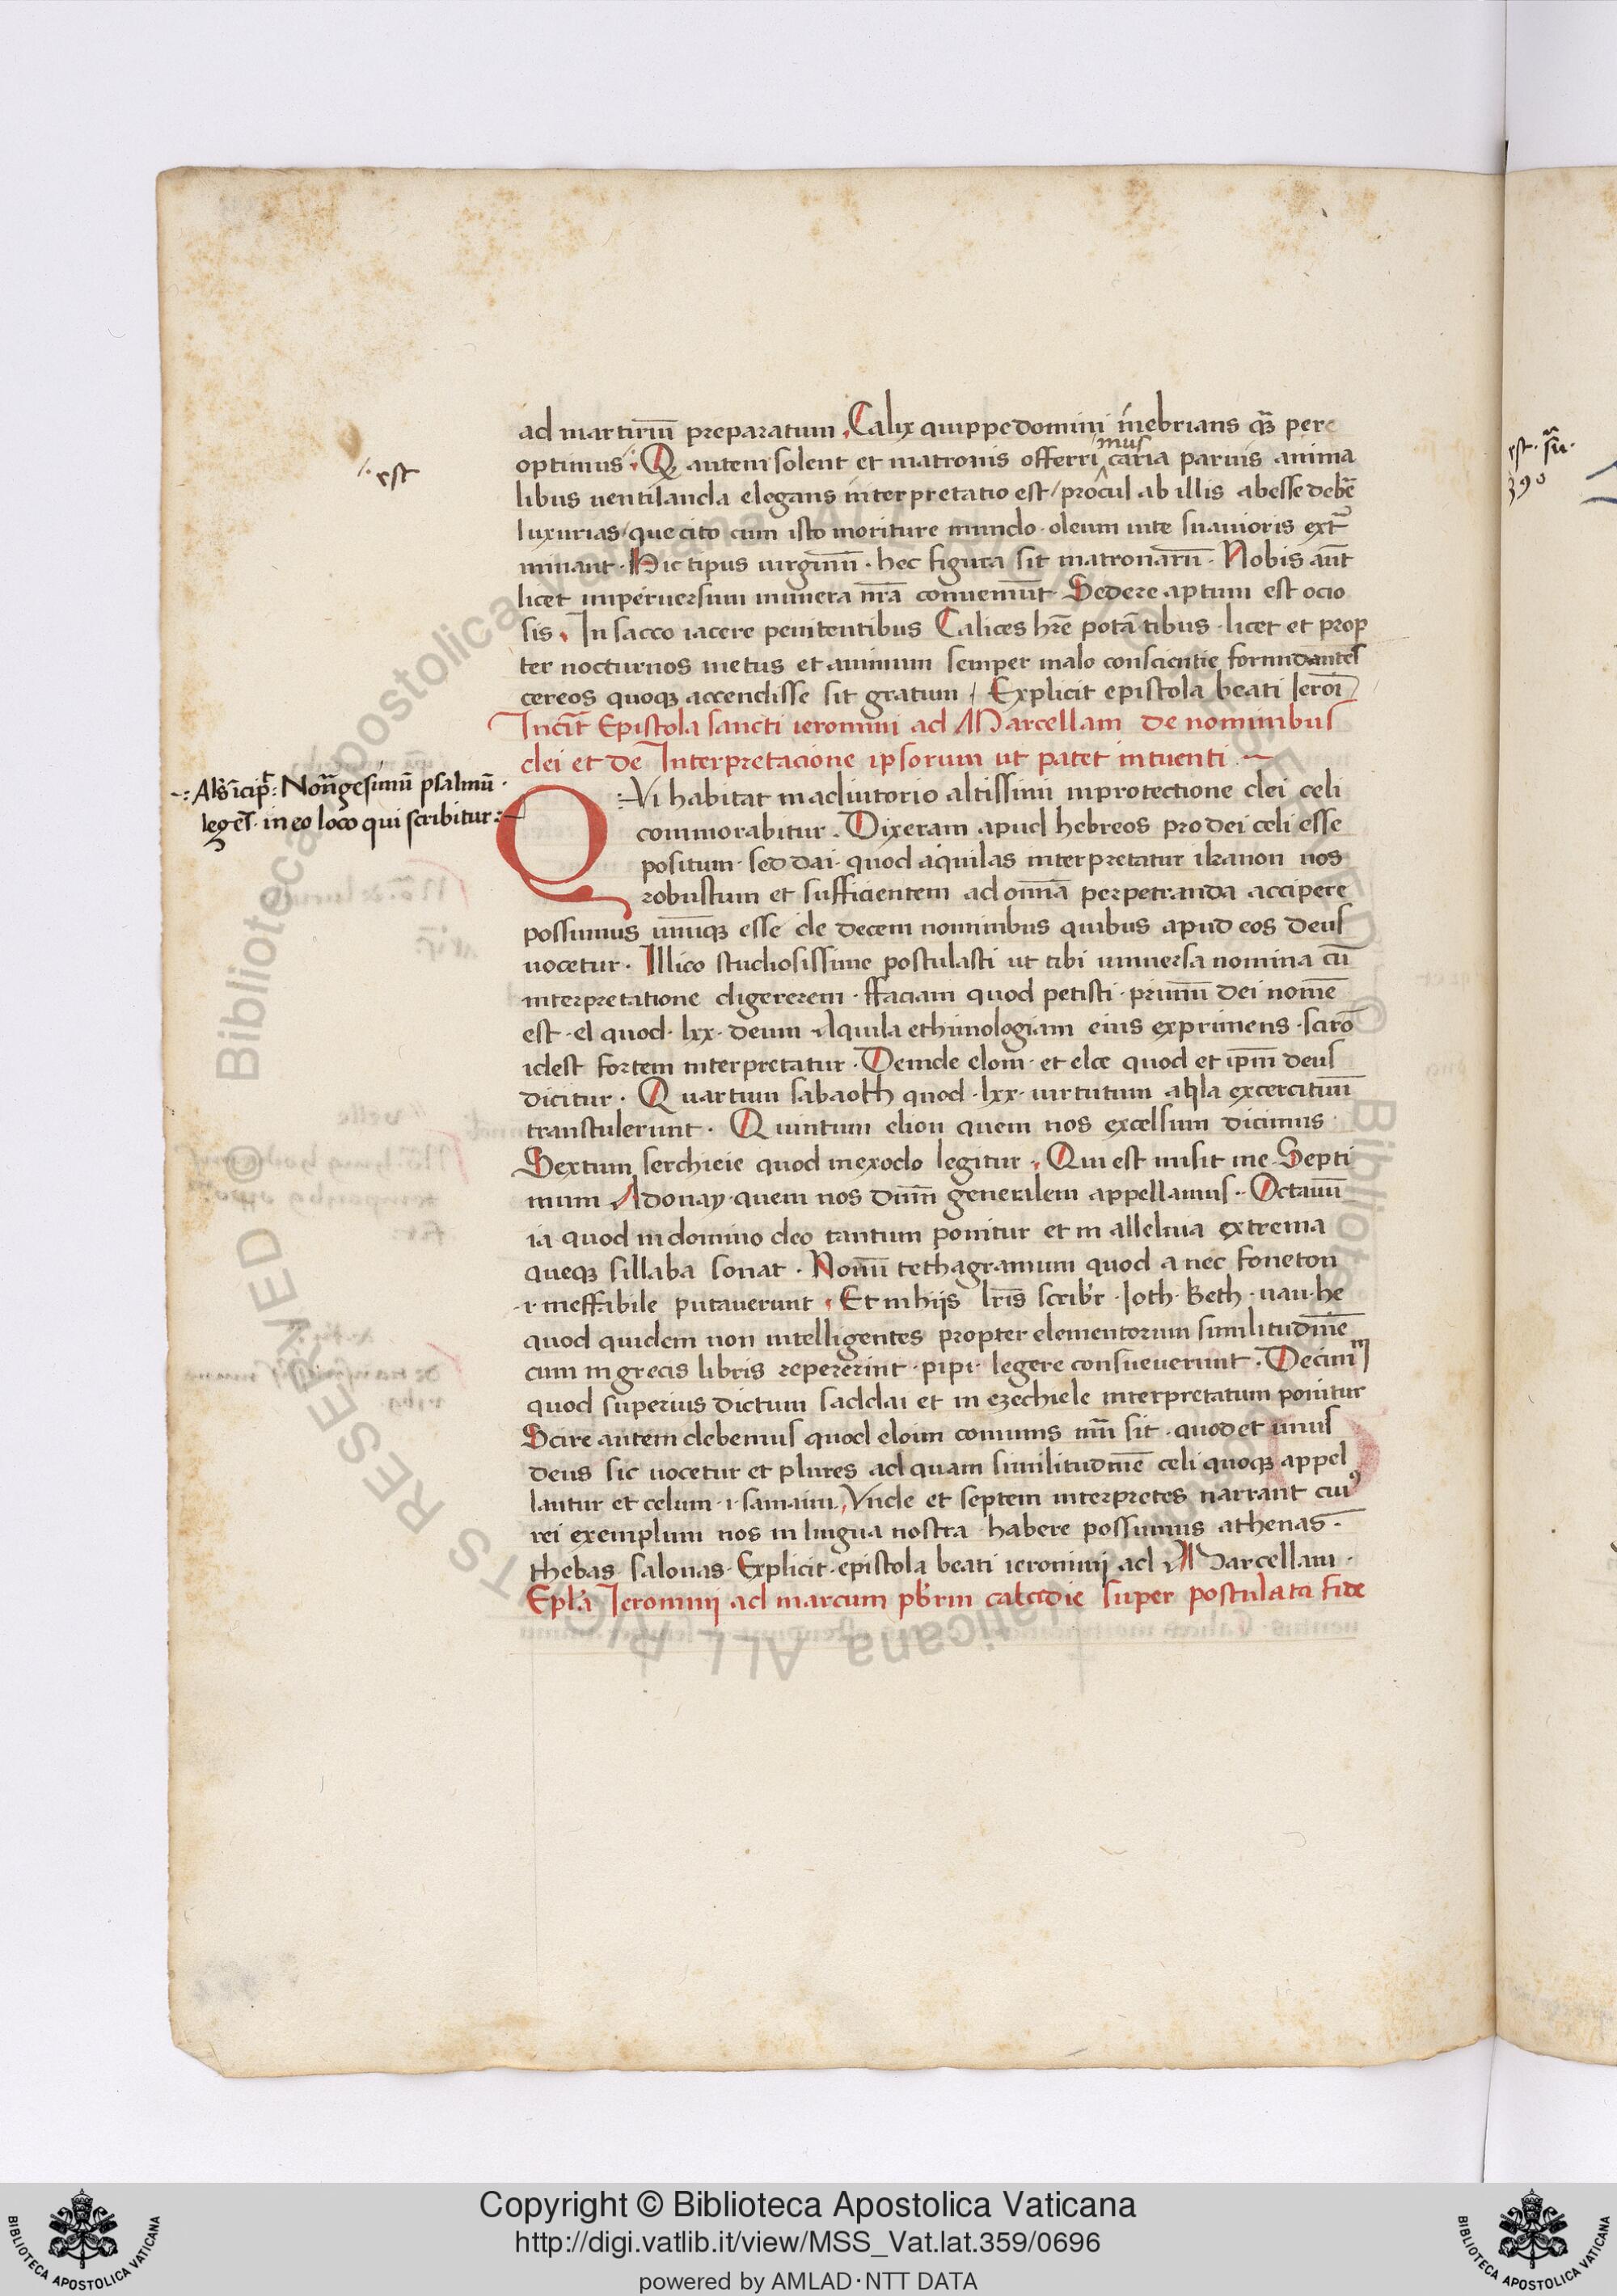 ad martiriū preparatum. Calix quippe domini inebrians q̄ȝ pere
optimus. Q autem solent et matronis offerri muscaria paruis anima
est
libus uentilanda elegans interpretatio est/ procul ab illis abesse debē
luxurias/ que cito cum isto moriture mundo. oleum uite suauioris ext̄
minant. Hic tipus uirginū. hec figura sit matronarū. Nobis aūt
licet in peruersum munera nr̄a conueniūt. Sedere aptum est ocio
sis. In sacco iacere penitentibus Calices hr̄e potātibus. licet et prop
ter nocturnos metus et animum semper malo conscientie formidantes
cereos quoqȝ accendisse sit gratum / Explicit epistola beati Ieroī
Incīt Epistola sancti ieronimi ad Marcellam de nominibus
dei et de Interpretacione ipsorum ut patet intuenti
Als īcip̄: Nonagesimū psalmū
legēs. in eo loco qui scribitur:
QVi habitat in adiutorio altissimi in protectione dei celi
commorabitur. Dixeram apud hebreos pro dei celi esse
positum. sed dai. quod aquilas interpretatur ikanon nos
robustum et sufficientem ad omīa perpetranda accipere
possumus unūqȝ esse de decem nominibus quibus apud eos deus
uocetur. Illico studiosissime postulasti ut tibi uniuersa nomina cū
interpretatione digererem. ffaciam quod petisti. primū dei nomē
est. el quod. lxx. deum Aquila ethimologiam eius exprimens. scirō
idest fortem interpretatur. Deinde eloim. et eloe quod et ip̄m deus
dicitur. Quartum sabaoth quod. lxx. uirtutum aq̄la excercituū
transtulerunt. Quintum elion quem nos excelsum dicimus
Sextum serchieie quod in exodo legitur. Qui est misit me. Septi
mum Adonay. quem nos dūm generalem appellamus. Octauū
ia quod in domino deo tantum ponitur et in alleluia extrema
queqȝ sillaba sonat. Nonū tethagramum quod a nec foneton
.i. ineffabile putauerunt. Et in hijs lr̄is scribr̄. Ioth. Beth. uau. he
quod quidem non intelligentes propter elementorum similitudinē
cum in grecis libris repererint. pipi. legere consueuerunt. Decimm
quod superius dictum saddai et in ezechiele interpretatum ponitur
Scire autem debemus quod eloim comuns nūm sit. quod et unus
deus sic uocetur et plures ad quam similitudinē celi quoqȝ appel
lantur et celum. i. samaim. Vnde et septem interpretes narrant cuiꝰ
rei exemplum nos in lingua nostra habere possumus athenas.
thebas salonas. Explicit. epistola beati ieronimi ad Marcellam.
Epl'a Ieronimi ad marcum pb'rm calcedie super postulata fide
est. sū.
390
Copyright © Biblioteca Apostolica Vaticana
http://digi.vatlib.it/view/MSS_Vat.lat.359/0696
powered by AMLAD·NTT DATA